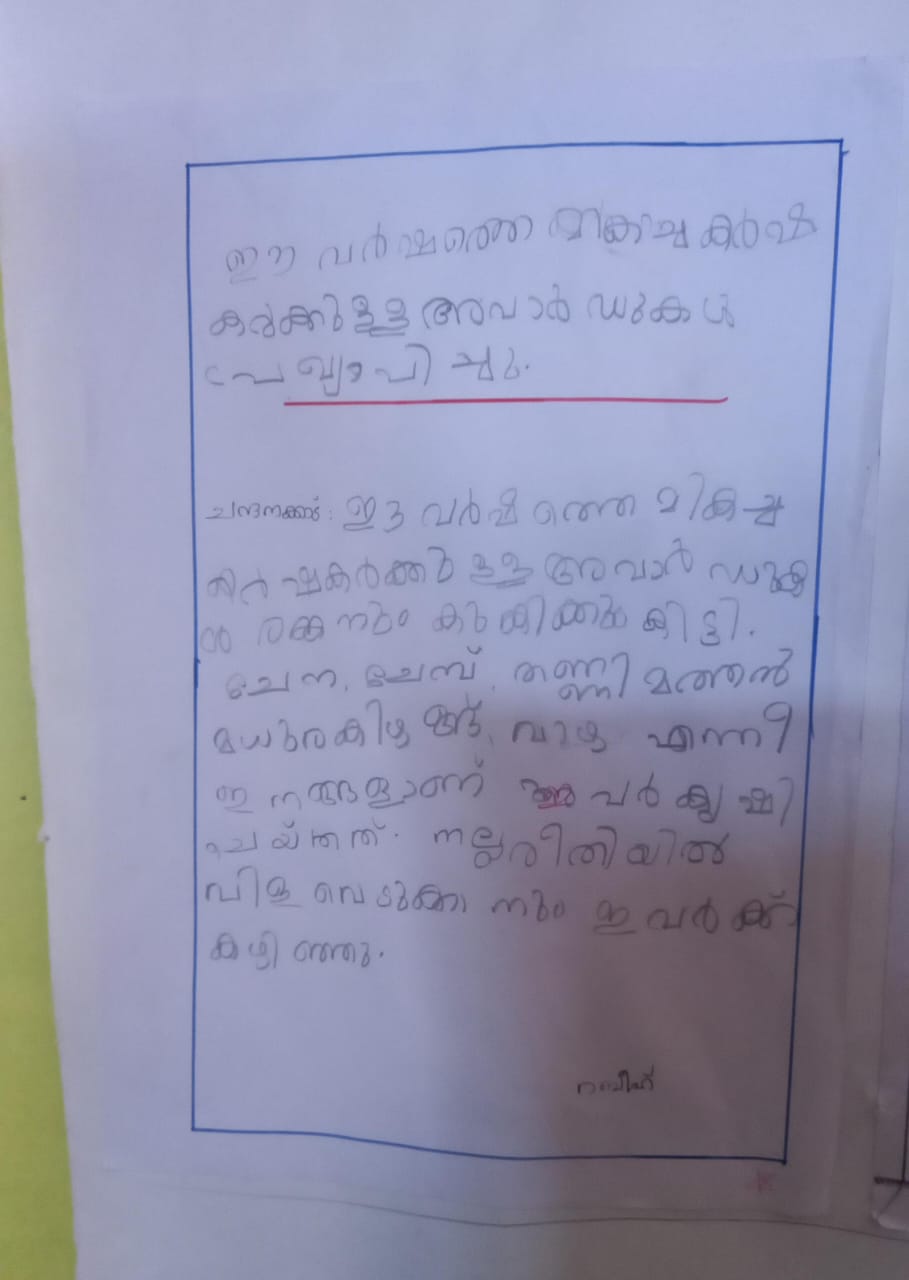 ഈ വർഷത്തെ മികച്ച കർഷ
കർക്കുള്ള അവാർഡുകൾ
പ്രഖ്യാപിച്ചു.
ചന്ദനക്കാട്: ഈ വർഷത്തെ മികച്ച
കർഷകർക്കുള്ള അവാർഡുക
ൾ രങ്കനും കുങ്കിക്കും കിട്ടി.
ചേന, ചേമ്പ്, തണ്ണിമത്തൻ
മധുരകിഴങ്ങ്, വാഴ എന്നീ
ഇനങ്ങളാണ് ഇവർ കൃഷി
ചെയ്തത്. നല്ലരീതിയിൽ
വിളവെടുക്കാനും ഇവർക്ക്
കഴിഞ്ഞു.